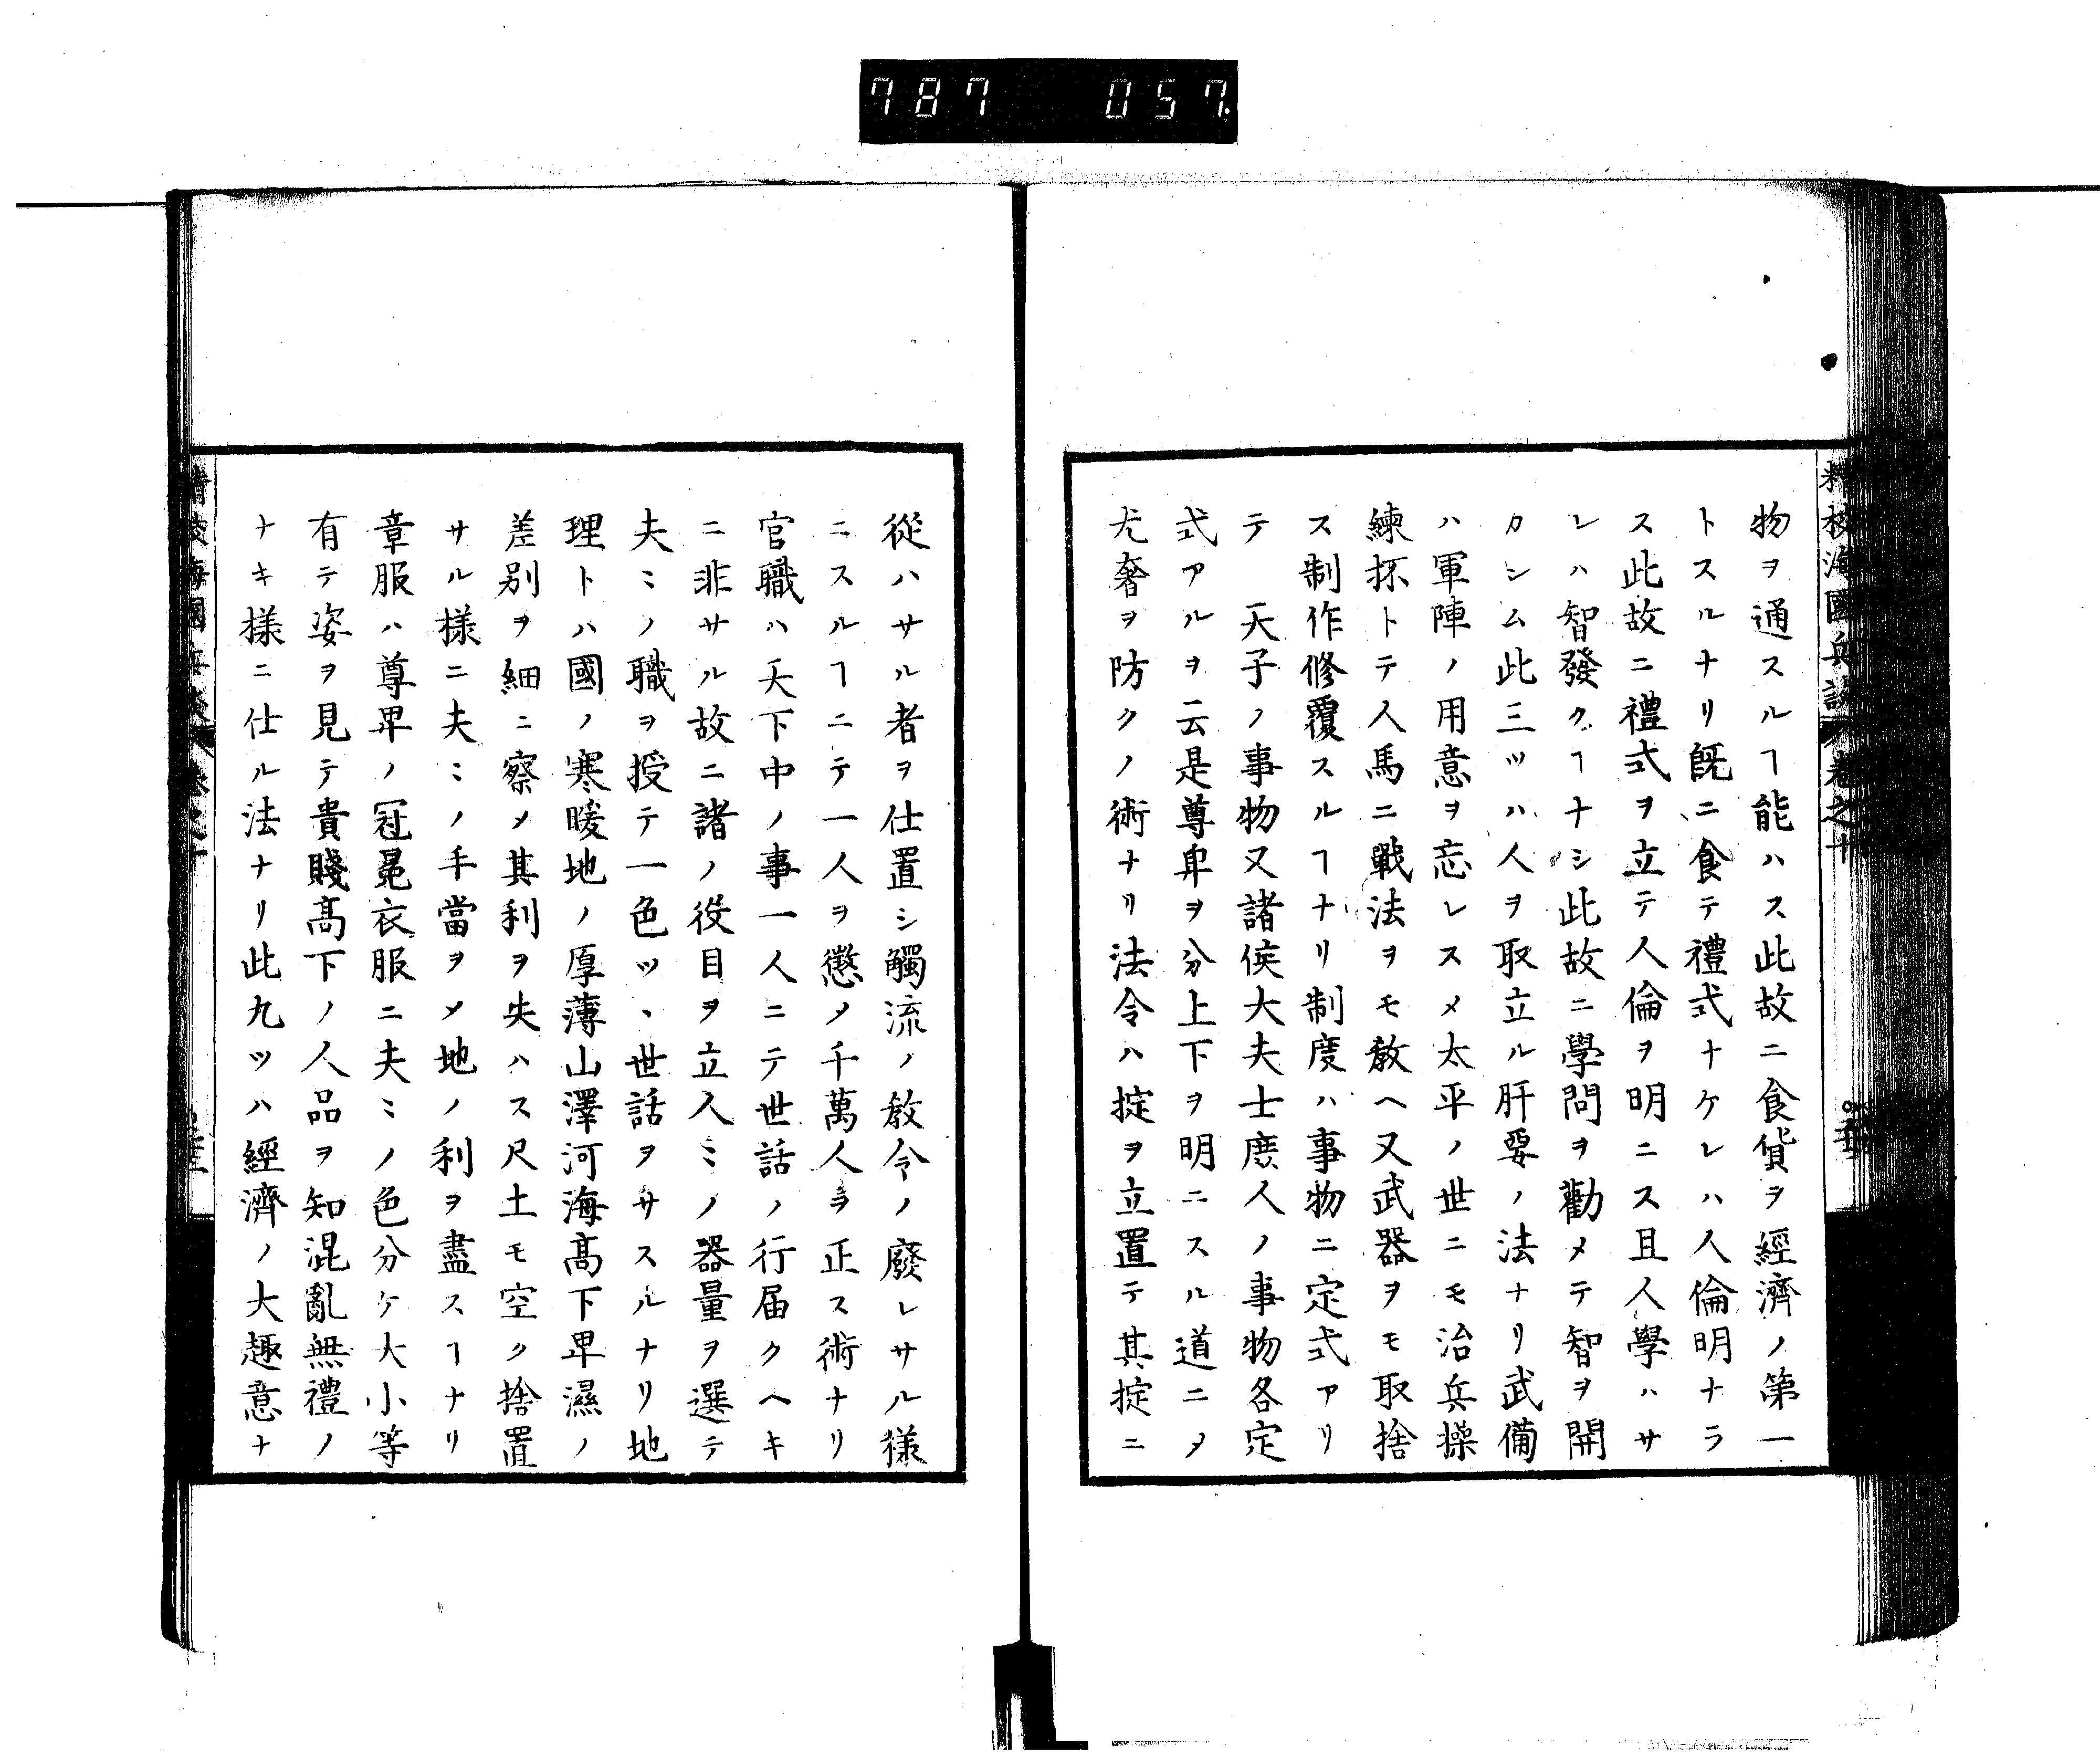 787 057
精校海國兵談 卷之十
物ヲ通スルヿ能ハス此故ニ食貨ヲ經濟ノ第一
トスルナリ既ニ食テ禮式ナケレハ人倫明ナラ
ス此故ニ禮式ヲ立テ人倫ヲ明ニス且人學ハサ
レハ智發クヿナシ此故ニ學問ヲ勸メテ智ヲ開
カシム此三ツハ人ヲ取立ル肝要ノ法ナリ武備
ハ軍陣ノ用意ヲ忘レスメ太平ノ世ニモ治兵操
練抔トテ人馬ニ戰法ヲモ敎ヘ又武器ヲモ取捨
ス制作修覆スルヿナリ制度ハ事物ニ定式アリ
テ 天子ノ事物又諸侯大夫士庶人ノ事物各定
式アルヲ云是尊卑ヲ分上下ヲ明ニスル道ニメ
尤奢ヲ防クノ術ナリ法令ハ掟ヲ立置テ其掟ニ
從ハサル者ヲ仕置シ觸流ノ敎令ノ廢レサル樣
ニスルヿニテ一人ヲ懲メ千萬人ヲ正ス術ナリ
官職ハ天下中ノ事一人ニテ世話ノ行届クヘキ
ニ非サル故ニ諸ノ役目ヲ立人ミノ器量ヲ選テ
夫ミノ職ヲ授テ一色ツヽ世話ヲサスルナリ地
理トハ國ノ寒暖地ノ厚薄山澤河海髙下卑濕ノ
差別ヲ細ニ察メ其利ヲ失ハス尺土モ空ク捨置
サル樣ニ夫ミノ手當ヲメ地ノ利ヲ盡スヿナリ
章服ハ尊卑ノ冠冕衣服ニ夫ミノ色分ケ大小等
有テ姿ヲ見テ貴賤髙下ノ人品ヲ知混亂無禮ノ
ナキ樣ニ仕ル法ナリ此九ツハ經濟ノ大趣意ナ
精校海國兵談 卷之十